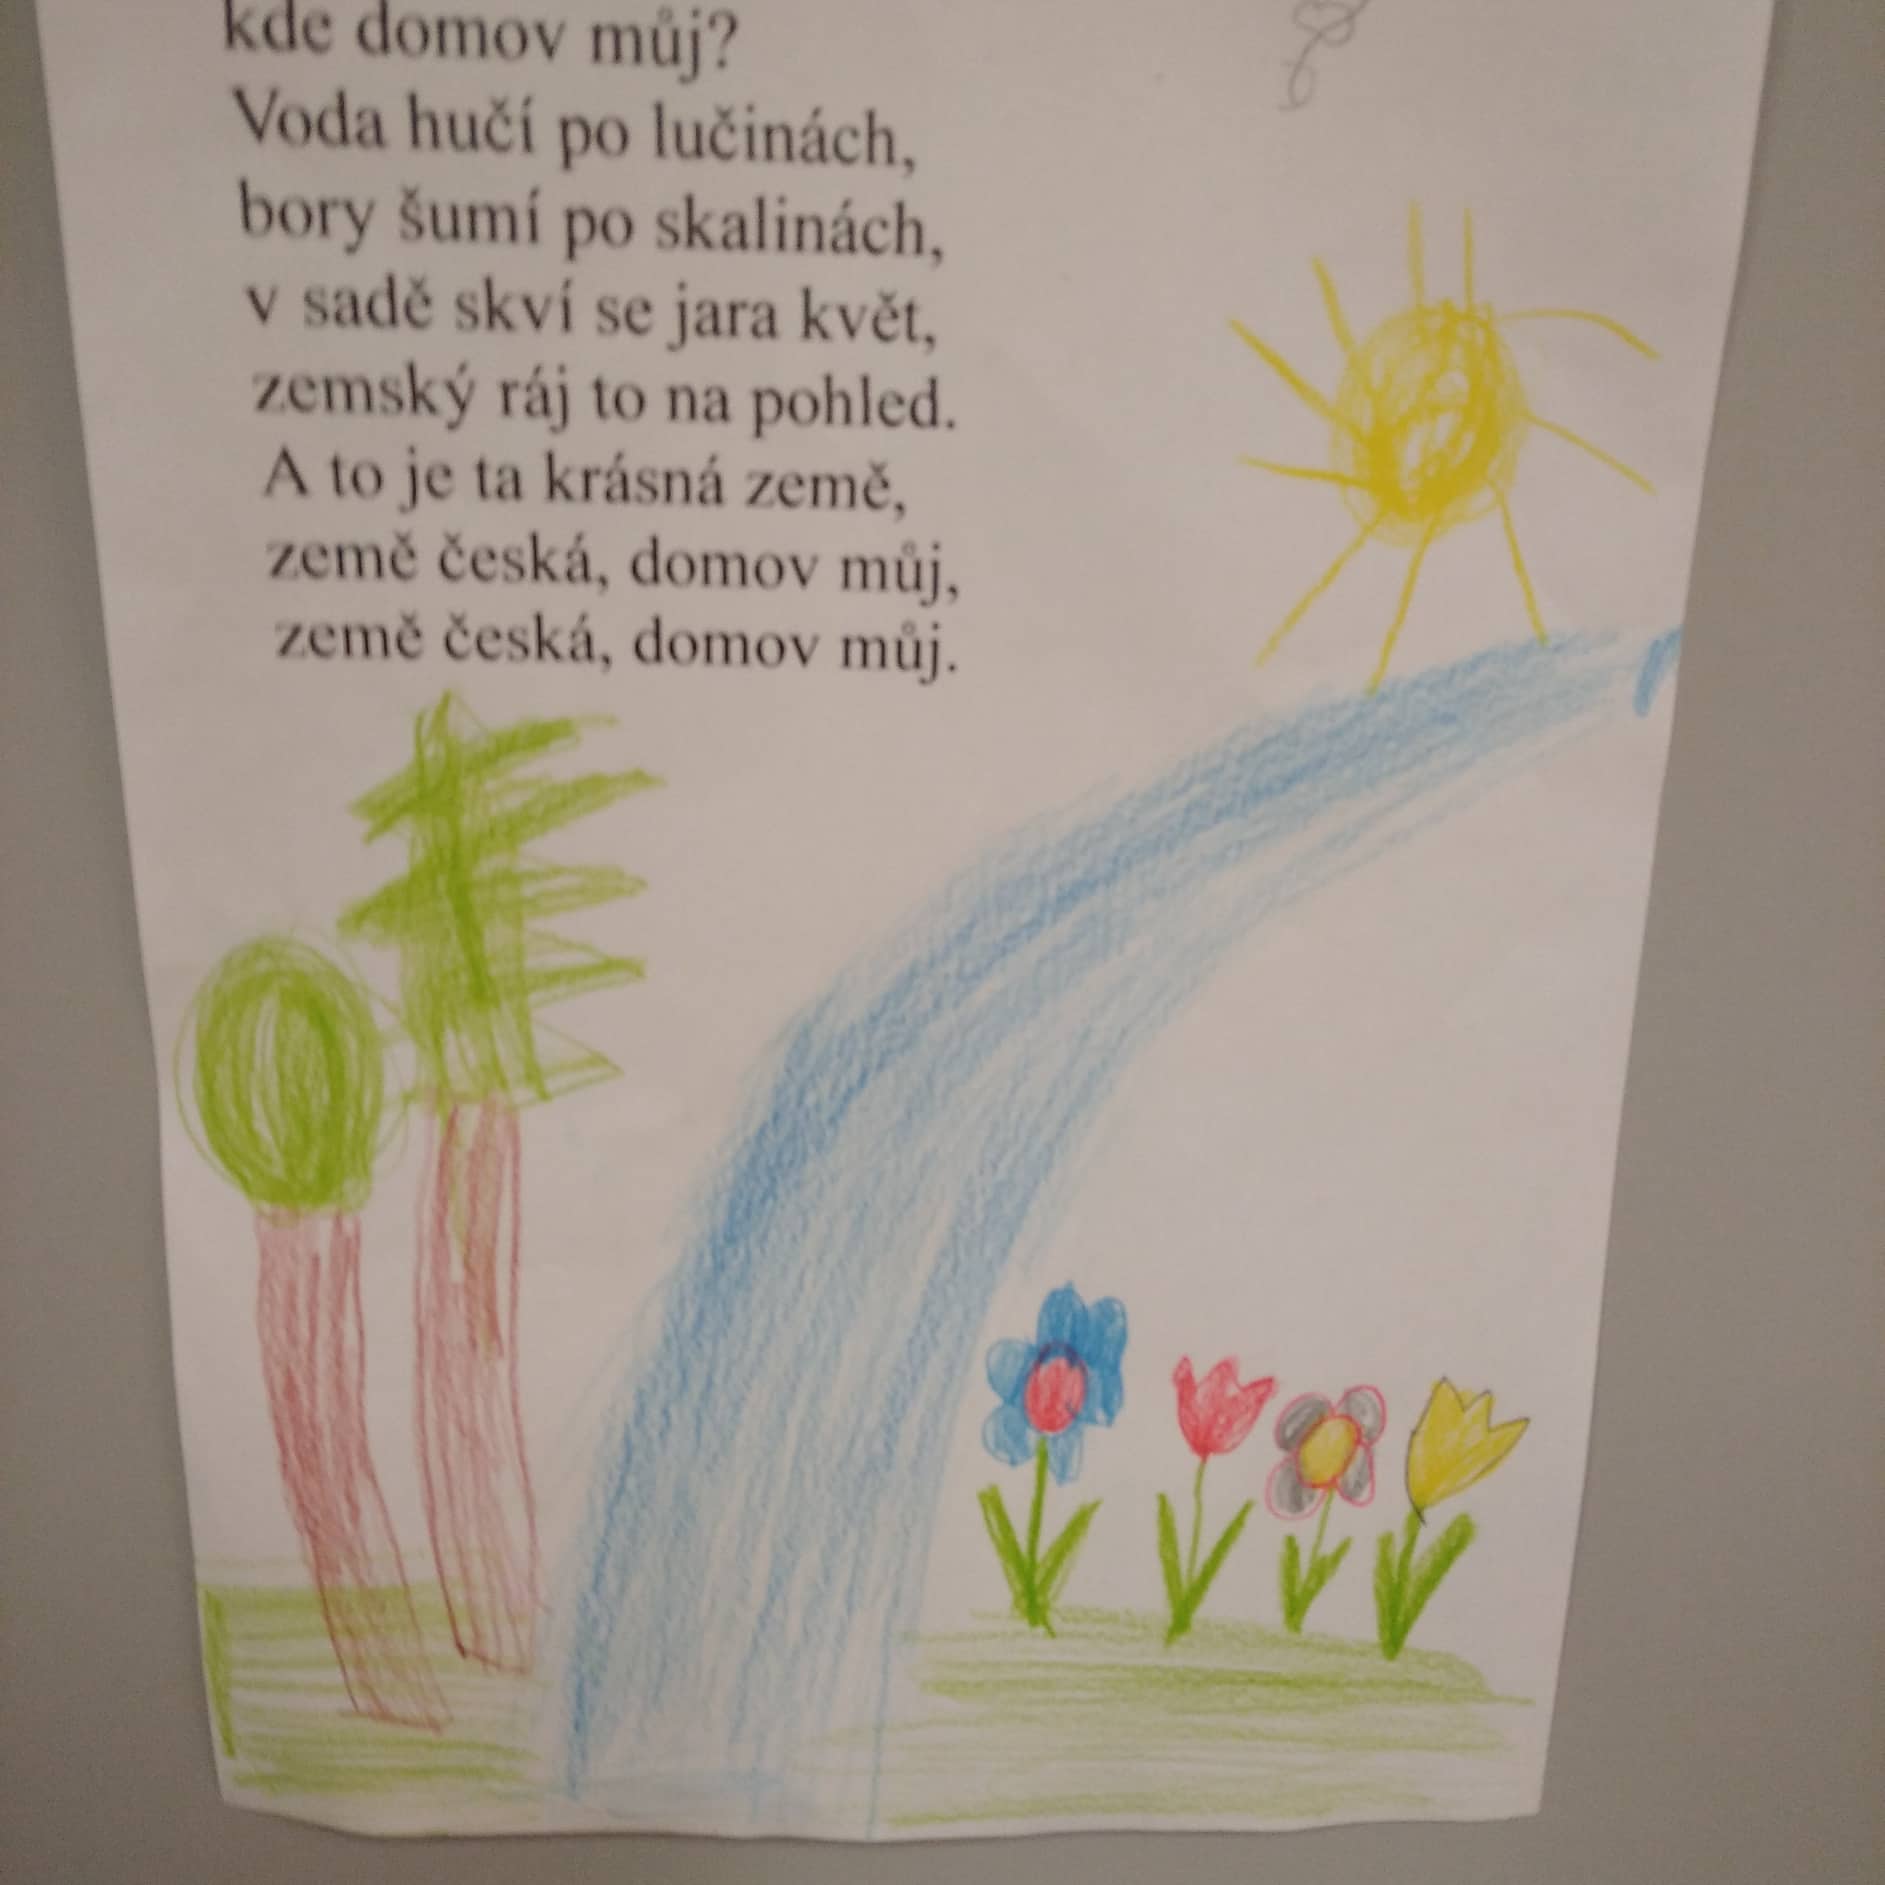 kde domov můj?
Voda hučí po lučinách,
bory šumí po skalinách,
v sadě skví se jara květ,
zemský ráj to na pohled.
A to je ta krásná země,
země česká, domov můj,
země česká, domov můj.